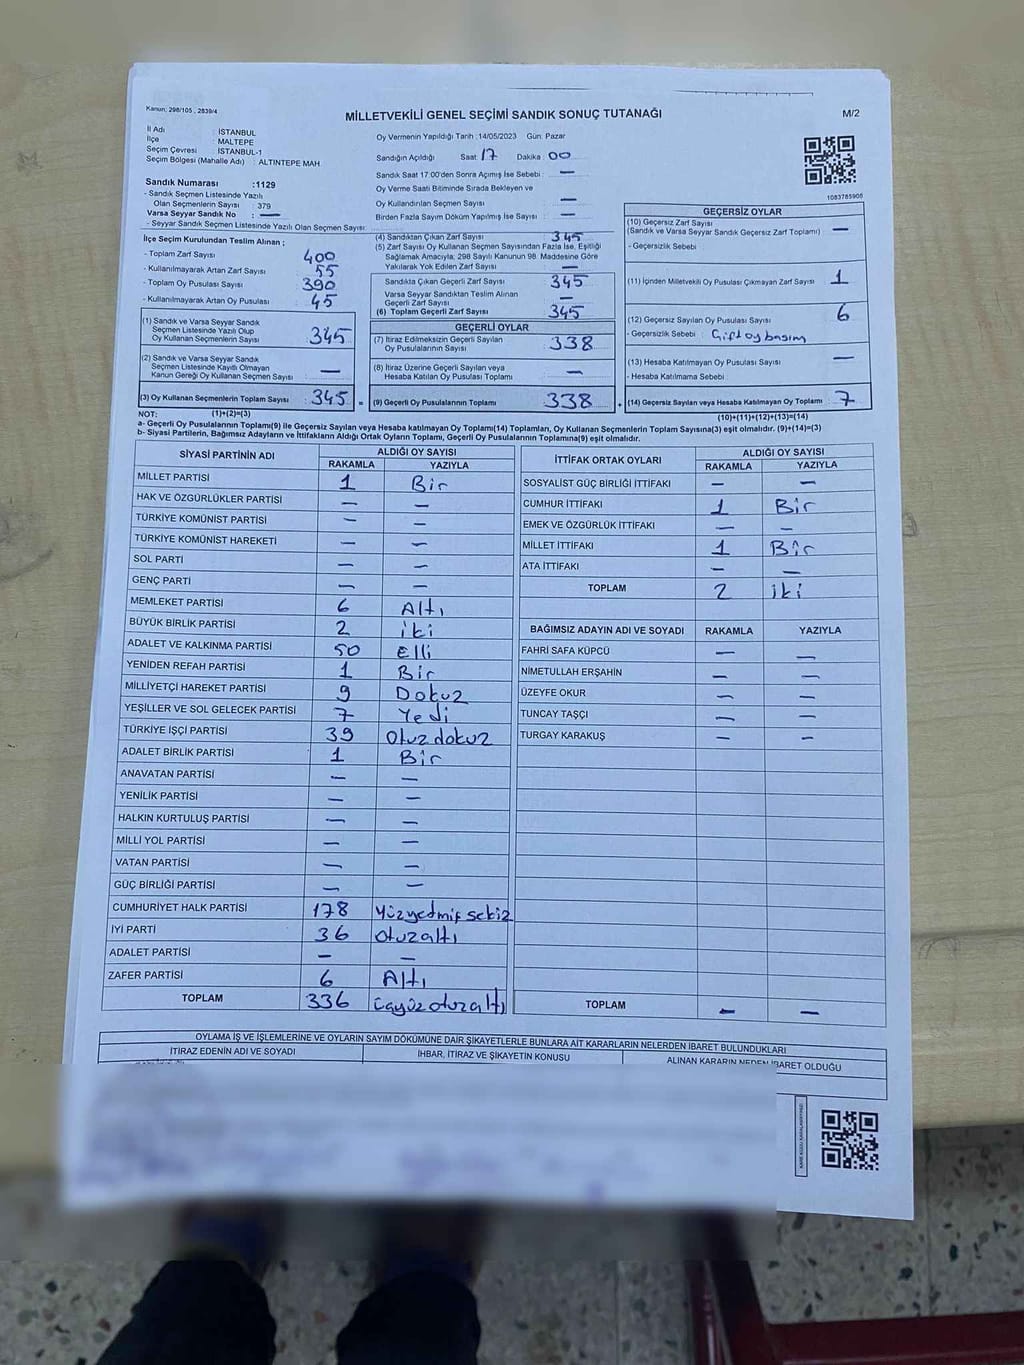 Kanun: 298/105 , 2839/4
MİLLETVEKİLİ GENEL SEÇİMİ SANDIK SONUÇ TUTANAĞI
M/2
İl Adı : İSTANBUL
İlçe : MALTEPE
Seçim Çevresi : İSTANBUL-1
Seçim Bölgesi (Mahalle Adı) : ALTINTEPE MAH
Oy Vermenin Yapıldığı Tarih :14/05/2023 Gün: Pazar
Sandığın Açıldığı Saat 17 Dakika : 00
Sandık Saat 17:00'den Sonra Açımış İse Sebebi : —
Oy Verme Saati Bitiminde Sırada Bekleyen ve
Oy Kullandırılan Seçmen Sayısı : —
Birden Fazla Sayım Döküm Yapılmış İse Sayısı : —
1083785908
Sandık Numarası :1129
- Sandık Seçmen Listesinde Yazılı
Olan Seçmenlerin Sayısı : 379
Varsa Seyyar Sandık No : —
- Seyyar Sandık Seçmen Listesinde Yazılı Olan Seçmen Sayısı :
İlçe Seçim Kurulundan Teslim Alınan ;
- Toplam Zarf Sayısı 400
- Kullanılmayarak Artan Zarf Sayısı 55
- Toplam Oy Pusulası Sayısı 390
- Kullanılmayarak Artan Oy Pusulası 45
(1) Sandık ve Varsa Seyyar Sandık
Seçmen Listesinde Yazılı Olup
Oy Kullanan Seçmenlerin Sayısı 345
(2) Sandık ve Varsa Seyyar Sandık
Seçmen Listesinde Kayıtlı Olmayan
Kanun Gereği Oy Kullanan Seçmen Sayısı —
(3) Oy Kullanan Seçmenlerin Toplam Sayısı 345 =
(4) Sandıktan Çıkan Zarf Sayısı 345
(5) Zarf Sayısı Oy Kullanan Seçmen Sayısından Fazla İse, Eşitliği
Sağlamak Amacıyla, 298 Sayılı Kanunun 98. Maddesine Göre
Yakılarak Yok Edilen Zarf Sayısı —
Sandıkta Çıkan Geçerli Zarf Sayısı 345
Varsa Seyyar Sandıktan Teslim Alınan
Geçerli Zarf Sayısı —
(6) Toplam Geçerli Zarf Sayısı 345
GEÇERLİ OYLAR
(7) İtiraz Edilmeksizin Geçerli Sayılan
Oy Pusulalarının Sayısı 338
(8) İtiraz Üzerine Geçerli Sayılan veya
Hesaba Katılan Oy Pusulası Toplamı —
(9) Geçerli Oy Pusulalarının Toplamı 338 +
GEÇERSİZ OYLAR
(10) Geçersiz Zarf Sayısı
(Sandık ve Varsa Seyyar Sandık Geçersiz Zarf Toplamı) —
- Geçersizlik Sebebi
(11) İçinden Milletvekili Oy Pusulası Çıkmayan Zarf Sayısı 1
(12) Geçersiz Sayılan Oy Pusulası Sayısı 6
- Geçersizlik Sebebi : Çift oy basım
(13) Hesaba Katılmayan Oy Pusulası Sayısı —
- Hesaba Katılmama Sebebi
(14) Geçersiz Sayılan veya Hesaba Katılmayan Oy Toplamı 7
NOT: (1)+(2)=(3)
(10)+(11)+(12)+(13)=(14)
a- Geçerli Oy Pusulalarının Toplamı(9) ile Geçersiz Sayılan veya Hesaba katılmayan Oy Toplamı(14) Toplamları, Oy Kullanan Seçmenlerin Toplam Sayısına(3) eşit olmalıdır. (9)+(14)=(3)
b- Siyasi Partilerin, Bağımsız Adayların ve İttifakların Aldığı Ortak Oyların Toplamı, Geçerli Oy Pusulalarının Toplamına(9) eşit olmalıdır.
SİYASİ PARTİNİN ADI ALDIĞI OY SAYISI
RAKAMLA YAZIYLA
MİLLET PARTİSİ 1 Bir
HAK VE ÖZGÜRLÜKLER PARTİSİ — —
TÜRKİYE KOMÜNİST PARTİSİ — —
TÜRKİYE KOMÜNİST HAREKETİ — —
SOL PARTİ — —
GENÇ PARTİ — —
MEMLEKET PARTİSİ 6 Altı
BÜYÜK BİRLİK PARTİSİ 2 iki
ADALET VE KALKINMA PARTİSİ 50 Elli
YENİDEN REFAH PARTİSİ 1 Bir
MİLLİYETÇİ HAREKET PARTİSİ 9 Dokuz
YEŞİLLER VE SOL GELECEK PARTİSİ 7 Yedi
TÜRKİYE İŞÇİ PARTİSİ 39 Otuzdokuz
ADALET BİRLİK PARTİSİ 1 Bir
ANAVATAN PARTİSİ — —
YENİLİK PARTİSİ — —
HALKIN KURTULUŞ PARTİSİ — —
MİLLİ YOL PARTİSİ — —
VATAN PARTİSİ — —
GÜÇ BİRLİĞİ PARTİSİ — —
CUMHURİYET HALK PARTİSİ 178 Yüzyetmiş sekiz
İYİ PARTİ 36 Otuzaltı
ADALET PARTİSİ — —
ZAFER PARTİSİ 6 Altı
TOPLAM 336 Üçyüz otuz altı
İTTİFAK ORTAK OYLARI ALDIĞI OY SAYISI
RAKAMLA YAZIYLA
SOSYALİST GÜÇ BİRLİĞİ İTTİFAKI — —
CUMHUR İTTİFAKI 1 Bir
EMEK VE ÖZGÜRLÜK İTTİFAKI — —
MİLLET İTTİFAKI 1 Bir
ATA İTTİFAKI — —
TOPLAM 2 iki
BAĞIMSIZ ADAYIN ADI VE SOYADI RAKAMLA YAZIYLA
FAHRİ SAFA KÜPCÜ — —
NİMETULLAH ERŞAHİN — —
ÜZEYFE OKUR — —
TUNCAY TAŞÇI — —
TURGAY KARAKUŞ — —
TOPLAM — —
OYLAMA İŞ VE İŞLEMLERİNE VE OYLARIN SAYIM DÖKÜMÜNE DAİR ŞİKAYETLERLE BUNLARA AİT KARARLARIN NELERDEN İBARET BULUNDUKLARI
İTİRAZ EDENİN ADI VE SOYADI İHBAR, İTİRAZ VE ŞİKAYETİN KONUSU ALINAN KARARIN NEDEN İBARET OLDUĞU